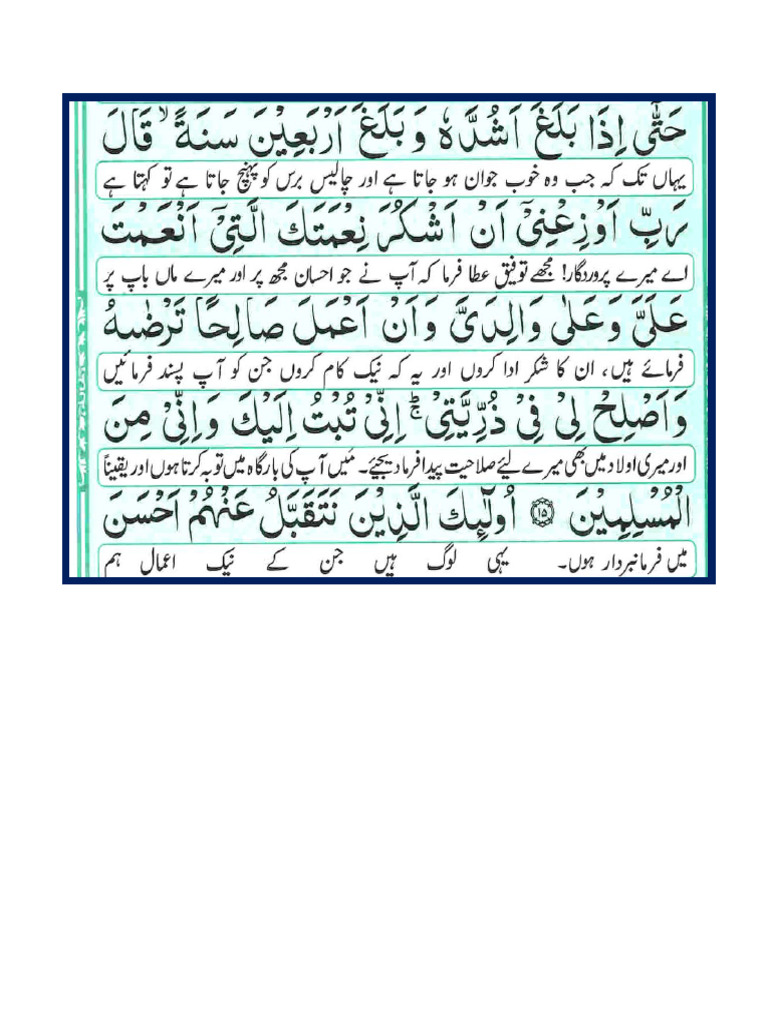 حَتّٰٓى اِذَا بَلَغَ اَشُدَّهٗ وَ بَلَغَ اَرْبَعِيْنَ سَنَةً ۙ قَالَ
یہاں تک کہ جب وہ خوب جوان ہو جاتا ہے اور چالیس برس کو پہنچ جاتا ہے تو کہتا ہے
رَبِّ اَوْزِعْنِيْٓ اَنْ اَشْكُرَ نِعْمَتَكَ الَّتِيْٓ اَنْعَمْتَ
اے میرے پروردگار! مجھے توفیق عطا فرما کہ آپ نے جو احسان مجھ پر اور میرے ماں باپ پر
عَلَيَّ وَ عَلٰى وَالِدَيَّ وَ اَنْ اَعْمَلَ صَالِحًا تَرْضٰىهُ
فرمائے ہیں، ان کا شکر ادا کروں اور یہ کہ نیک کام کروں جن کو آپ پسند فرمائیں
وَ اَصْلِحْ لِيْ فِيْ ذُرِّيَّتِيْ ۚ اِنِّيْ تُبْتُ اِلَيْكَ وَ اِنِّيْ مِنَ
اور میری اولاد میں بھی میرے لیٔے صلاحیت پیدا فرما دیجیٔے۔ مَیں آپ کی بارگاہ میں توبہ کرتا ہوں اور یقیناً
الْمُسْلِمِيْنَ ۝۱۵ اُولٰٓئِكَ الَّذِيْنَ نَتَقَبَّلُ عَنْهُمْ اَحْسَنَ
میں فرمانبردار ہوں۔ یہی لوگ ہیں جن کے نیک اعمال ہم